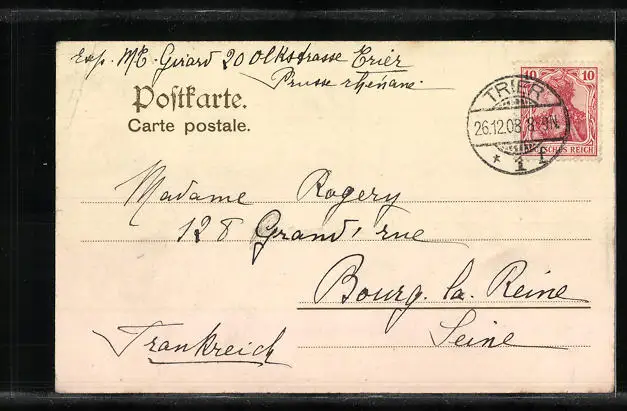 Exp. ME. Girard 20 Olkstrasse Trier
Prusse rhénane.
Postkarte.
Carte postale.
10 10
DEUTSCHES REICH
TRIER
26.12.08 8-9N.
* 1 f
Madame Rogery
128 Grand' rue
Bourg. la. Reine
Seine
Frankreich